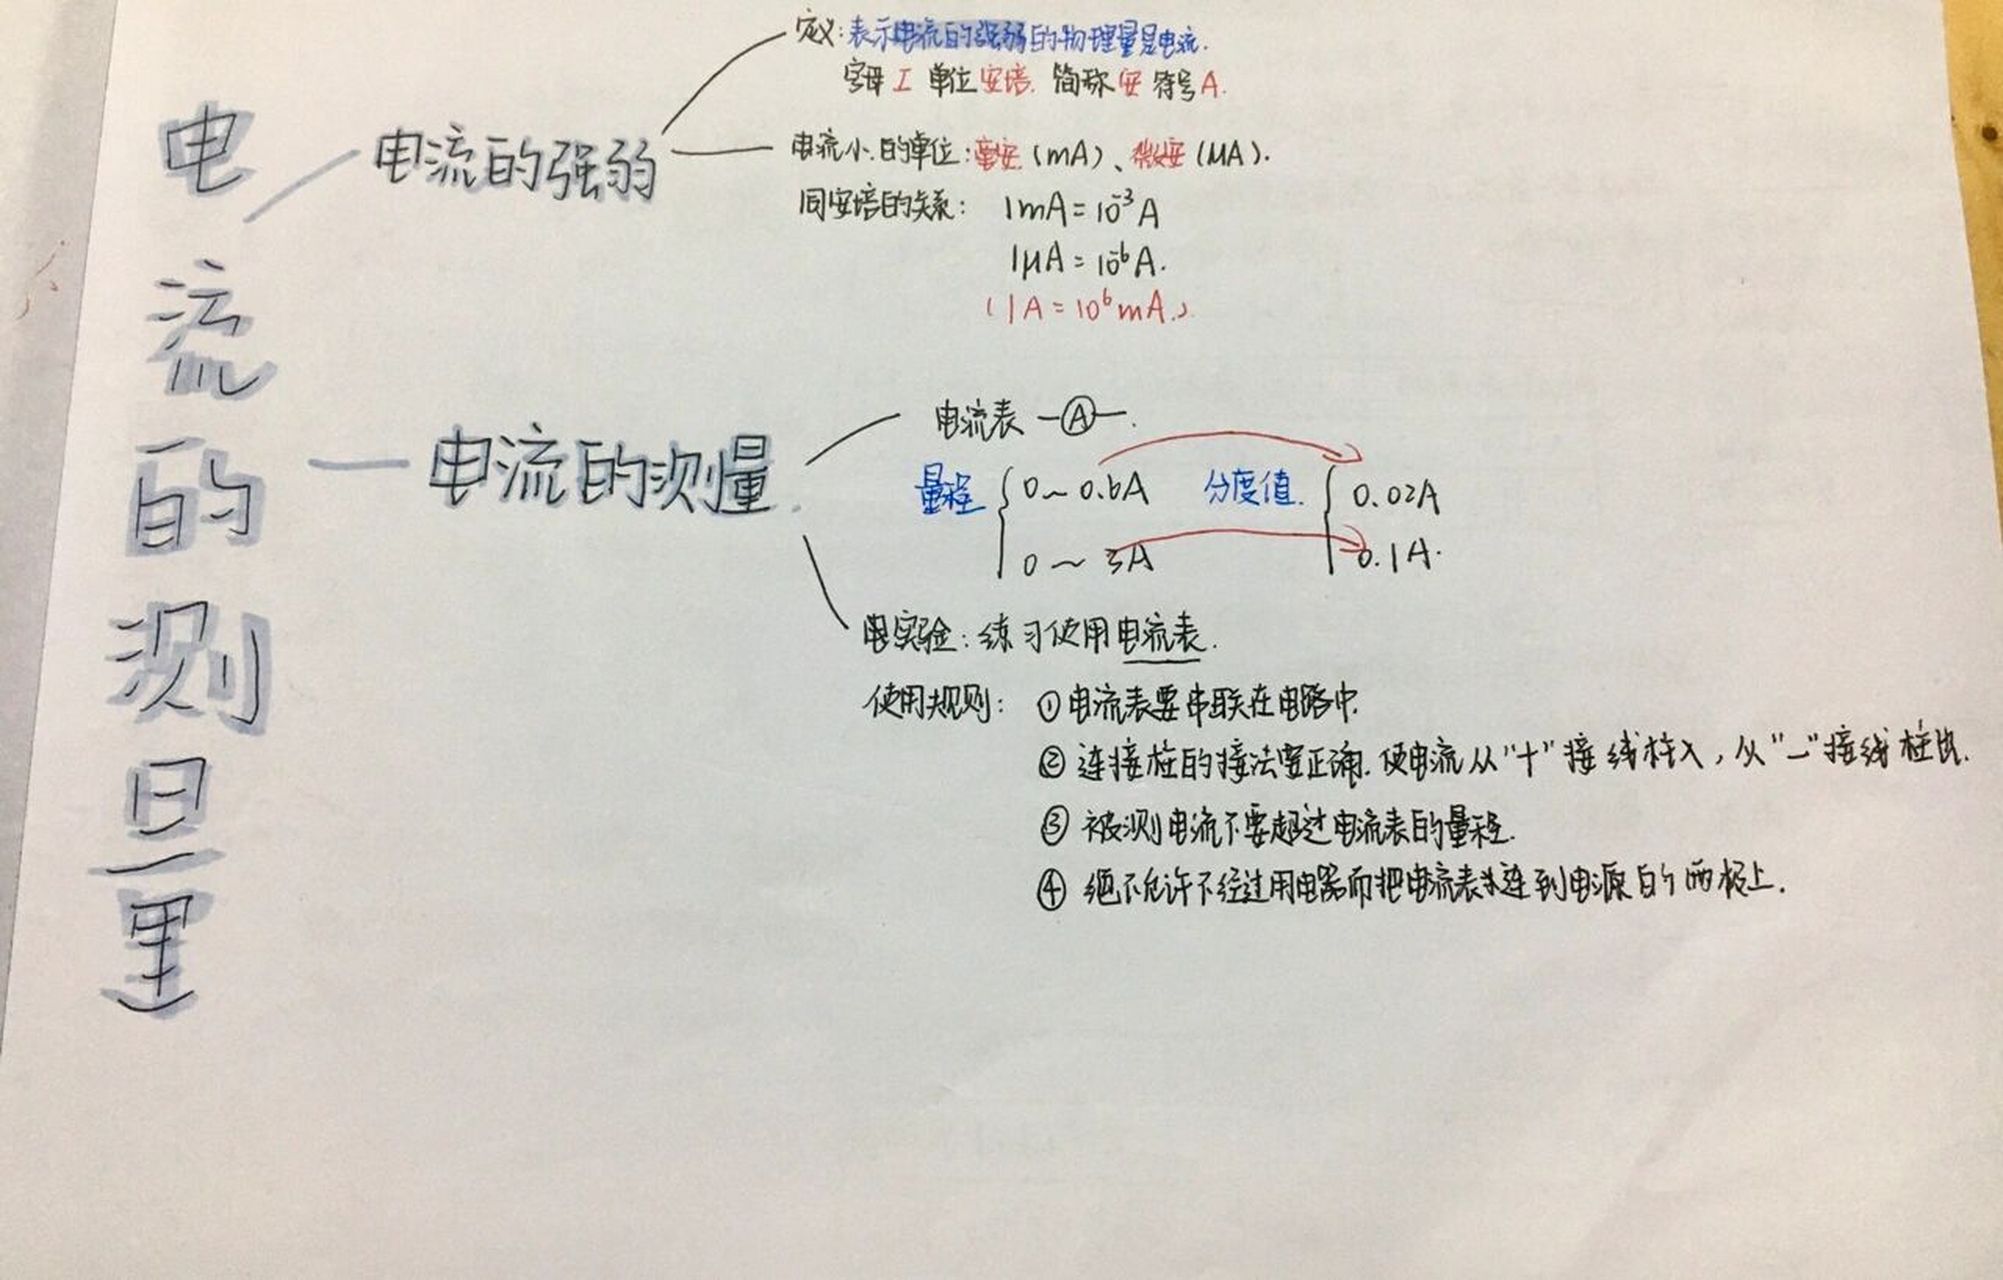 电流的测量
电流的强弱
定义:表示电流的强弱的物理量是电流.
字母 I 单位 安培. 简称 安 符号 A.
电流小.的单位:毫安 (mA)、微安 (μA).
同安培的关系: 1mA=10⁻³A
1μA=10⁻⁶A.
(1A=10⁶mA.)
电流的测量.
电流表 —Ⓐ—.
量程 { 0~0.6A 分度值. { 0.02A
0~3A 0.1A.
实验:练习使用电流表.
使用规则: ①电流表要串联在电路中.
② 连接柱的接法要正确.使电流从"十"接线柱入,从"一"接线柱出.
③ 被测电流不要超过电流表的量程.
④ 绝不允许不经过用电器而把电流表连到电源的两极上.